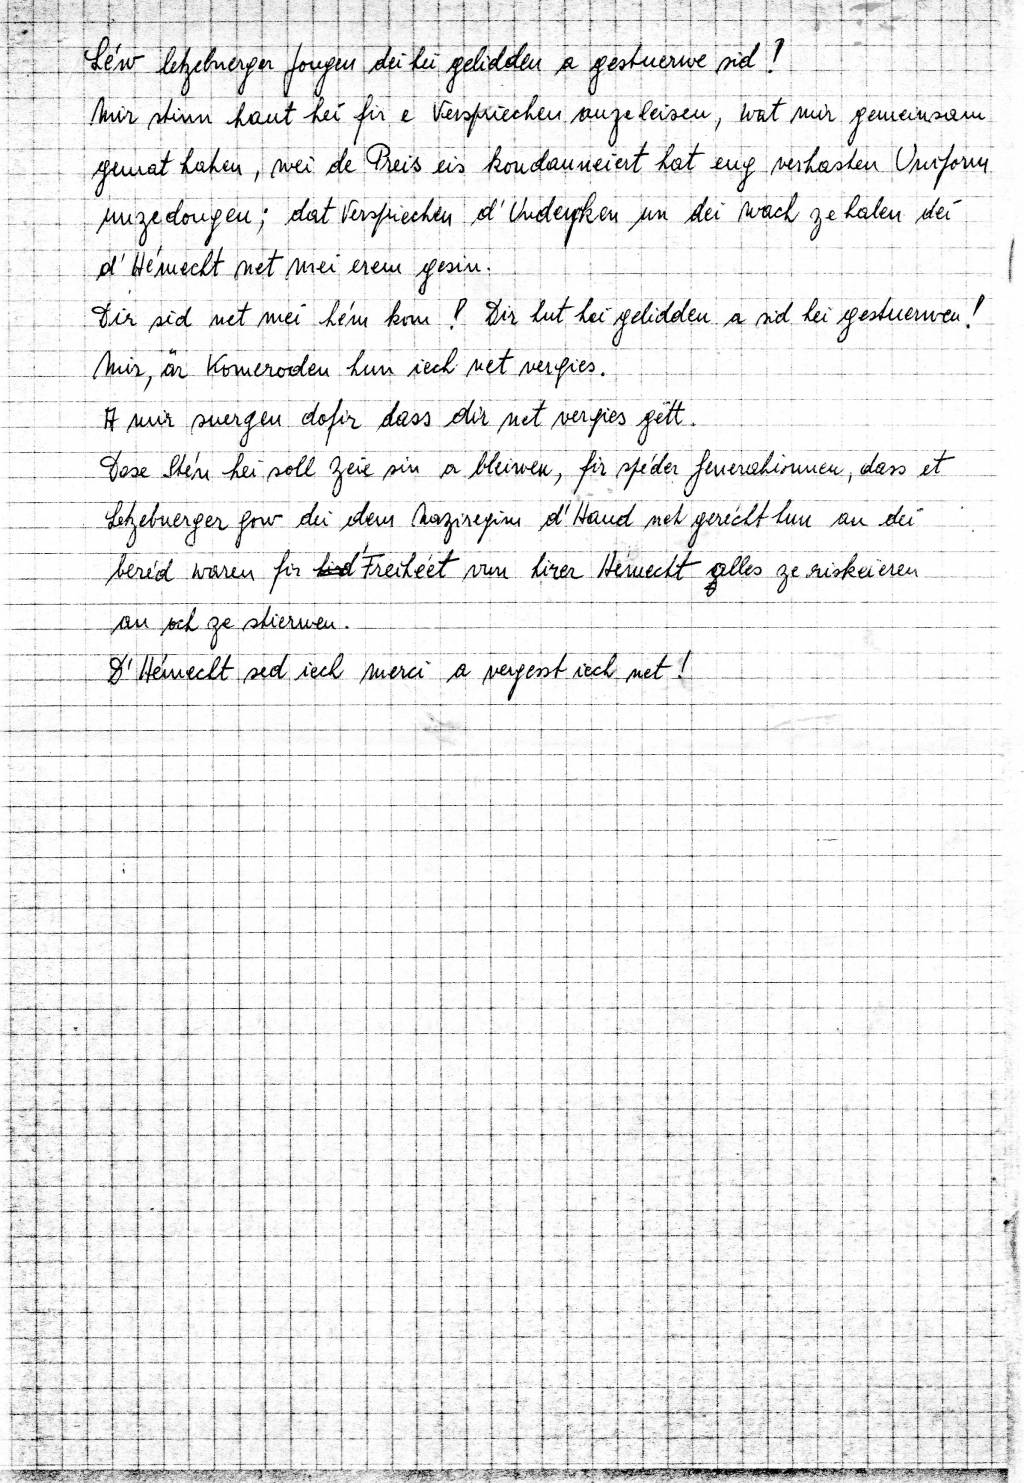 Léw letzebuerger Jongen déi hei gelidden a gestuerwe sid!
Mir stinn haut hei fir e Versprîechen anzeleisen, wat mir gemeinsam
gemat haten, wei de Preis eis kondamneiert hat eng verhasten Uniform
unzedongen; dat Versprîechen d'Undenken un dei wach ze halen dei
d'Hémecht net mei erem gesin.
Dir sid net mei hém kom! Dir hut hei gelidden a sid hei gestuerwen!
Mir, är Komeroden hun iech net vergies.
A mir suergen dofir dass dir net vergies gëtt.
Dese Stén hei soll Zeie sin a bleiwen, fir spéder Generatiounen, dass et
Letzebuerger gow dei dem Naziregim d'Hand net gerécht hun an dei
beréd waren fir d'Freihéet vun hirer Hémecht alles ze riskéieren
an och ze stierwen.
D'Hémecht sed iech merci a vergesst iech net!